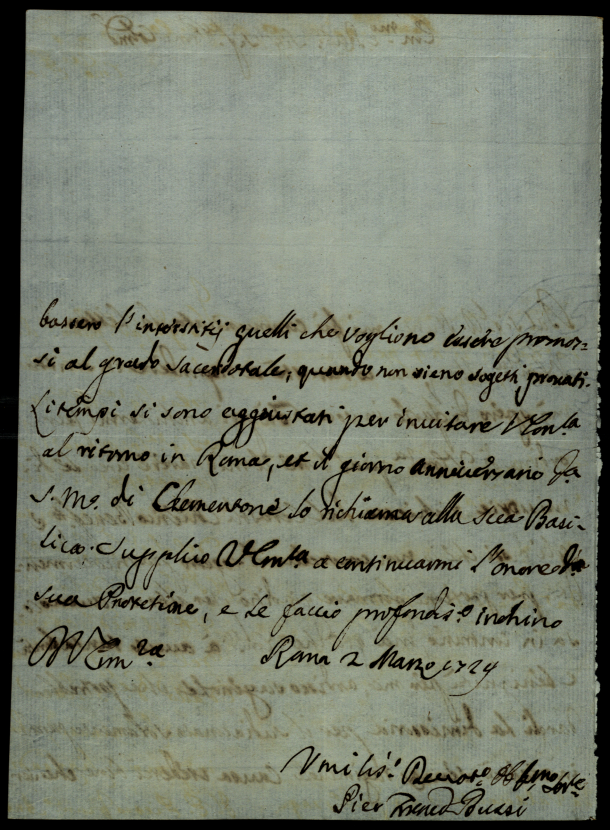 bassero l'interstitij quelli che vogliono essere promos=
si al grado sacerdotale, quando non sieno sogetti provati.
Li tempi si sono aggiustati per invitare V Em.za
al ritorno in Roma, et il giorno anniversario
S. M.a di Clementone lo richiama alla sua Basi=
lica. Supplico V Em.za a continuarmi l'onore
sua Protetione, e le faccio profondis.o inchino
Roma 2 Marzo 1729
Umilis.o Devot.o
Pier